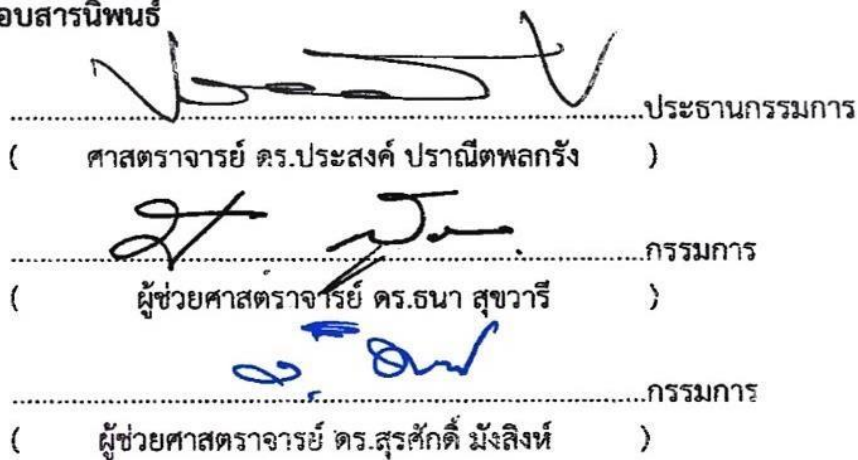 อบสารนิพนธ์
........................................ประธานกรรมการ
( ศาสตราจารย์ ดร.ประสงค์ ปราณีตพลกรัง )
........................................กรรมการ
( ผู้ช่วยศาสตราจารย์ ดร.ธนา สุขวารี )
........................................กรรมการ
( ผู้ช่วยศาสตราจารย์ ดร.สุรศักดิ์ มังสิงห์ )